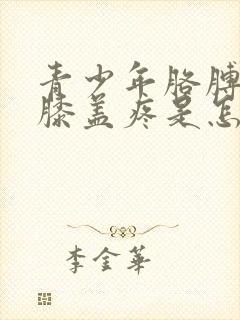 青少年胳膊
膝盖疼是怎
李金華